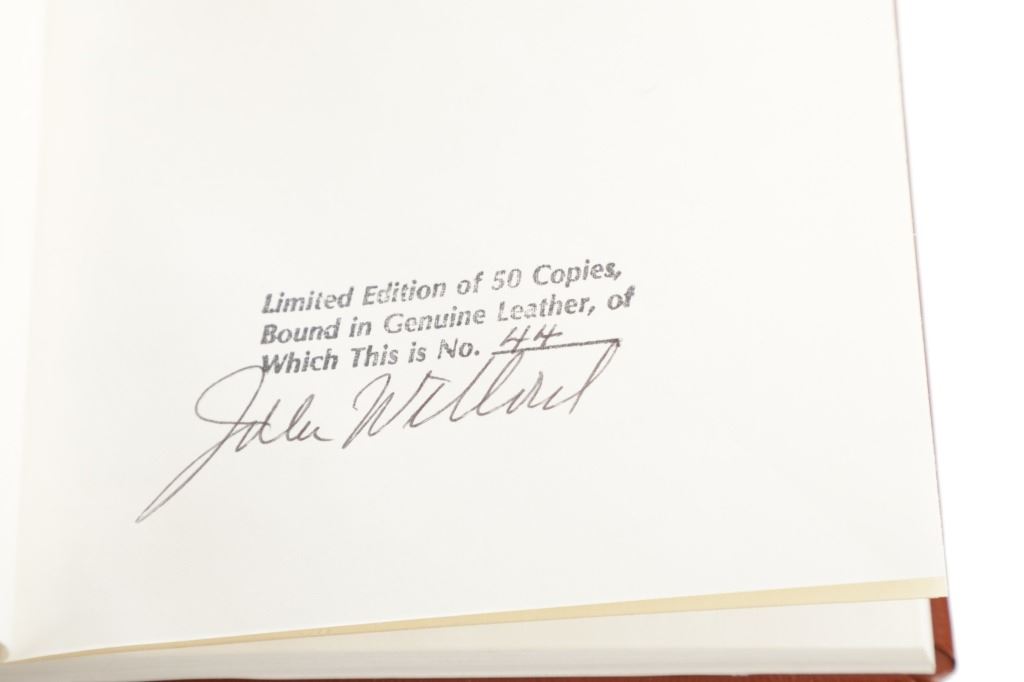 Limited Edition of 50 Copies,
Bound in Genuine Leather, of
Which This is No. 44
John Willard